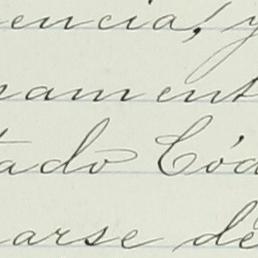 encia, y
samento
tado Cód
arse de